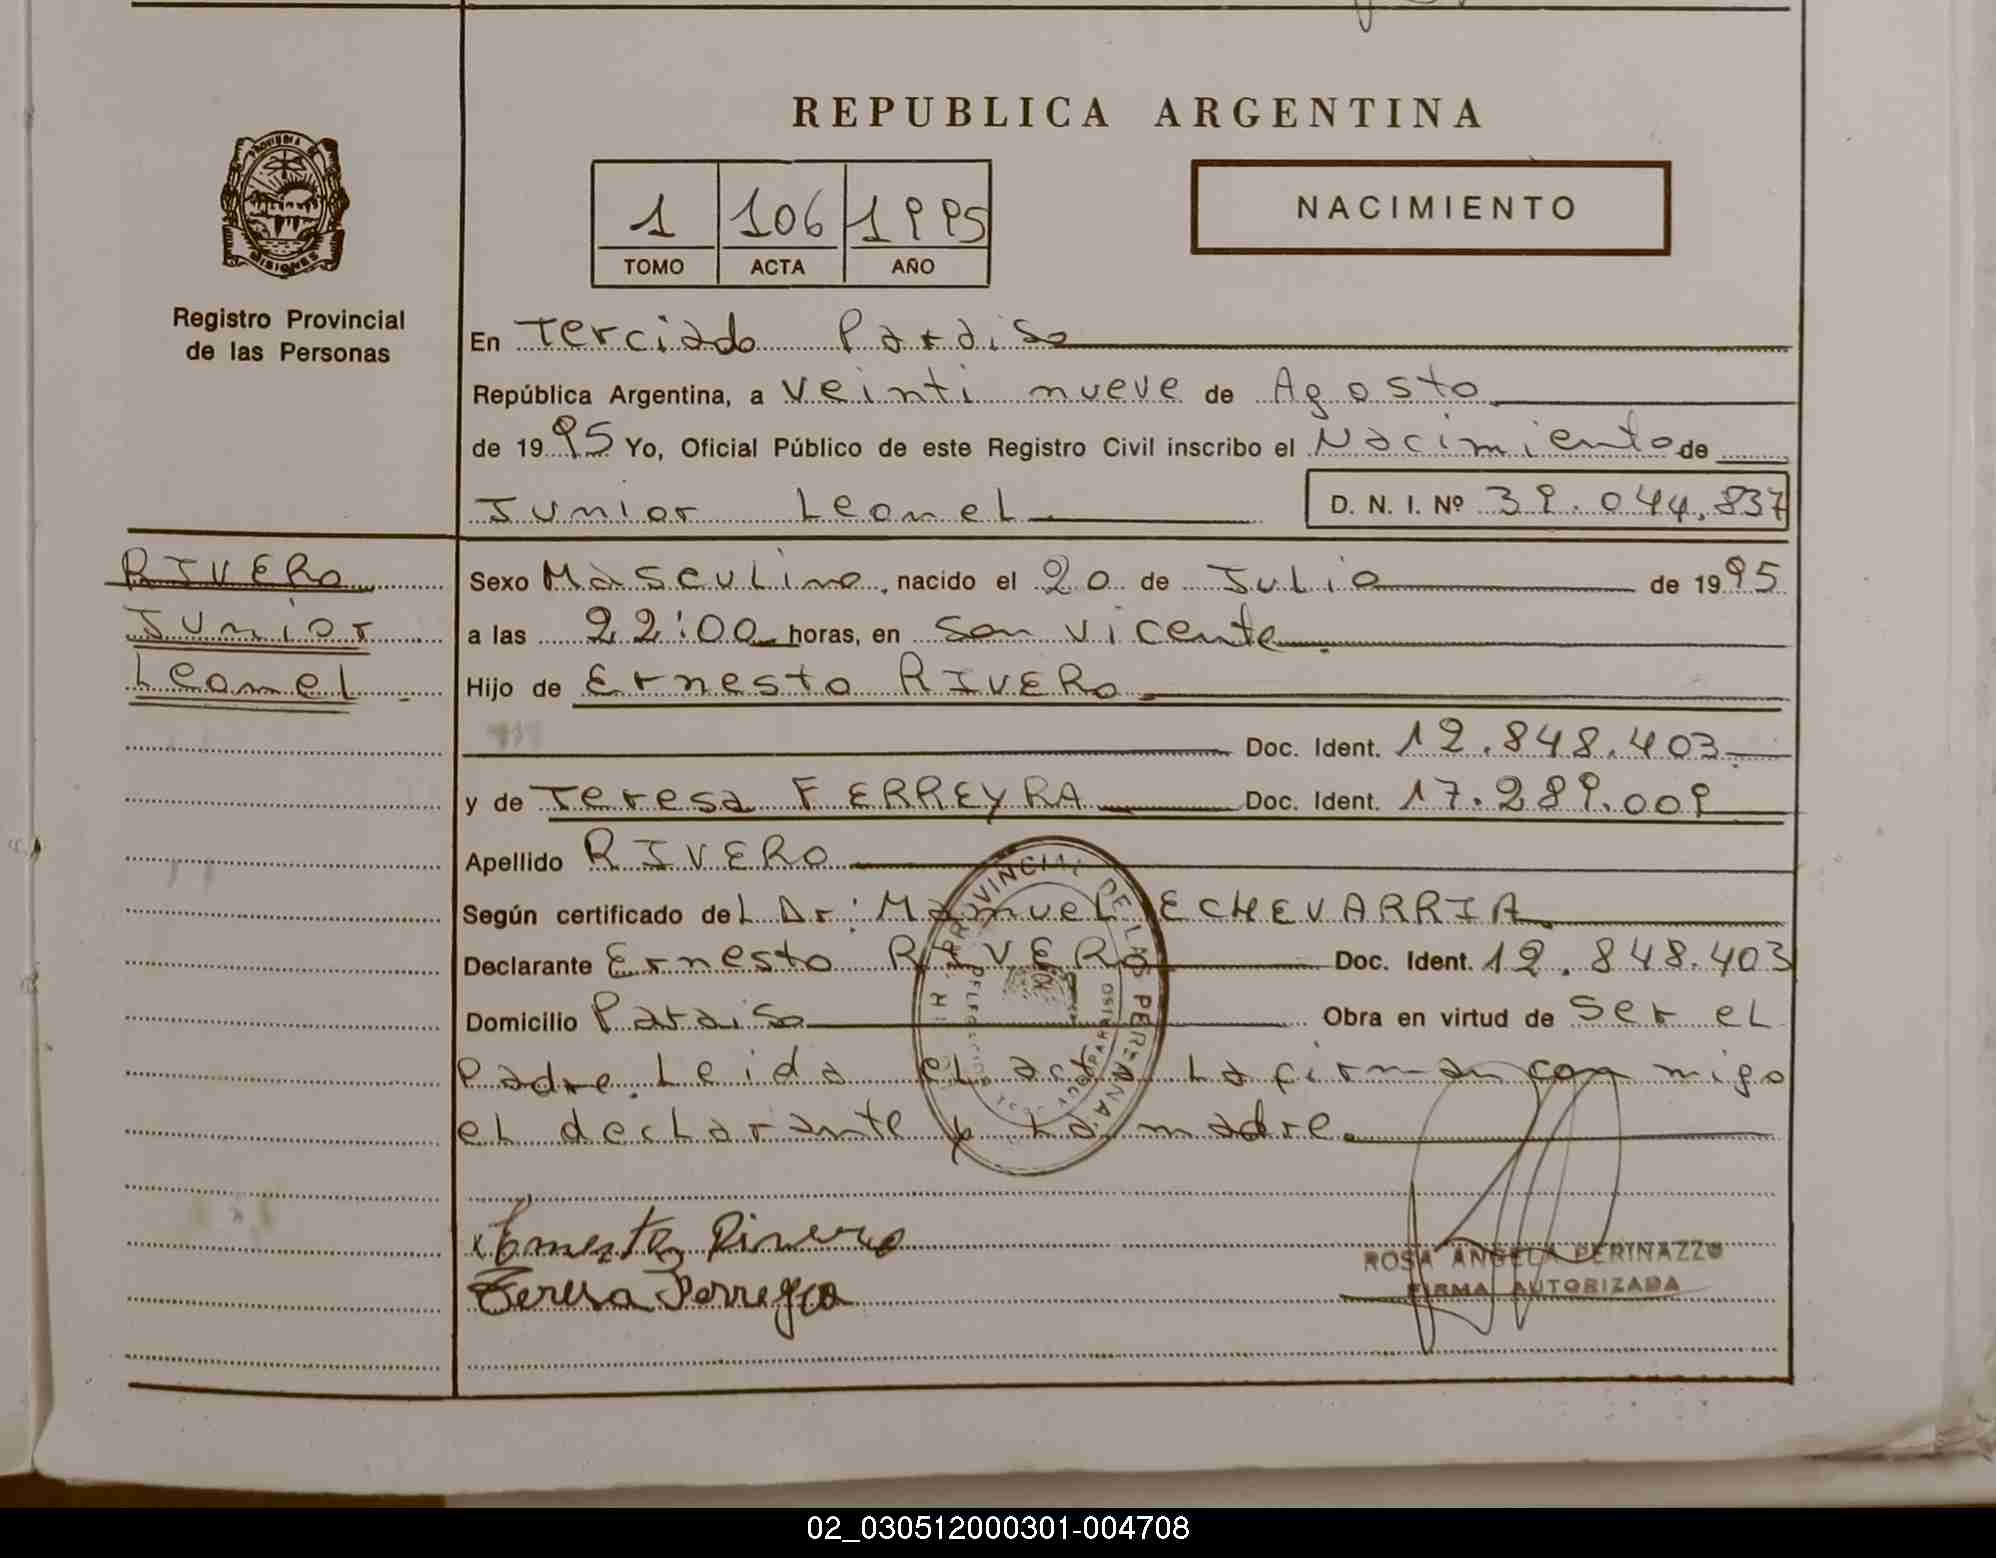 REPUBLICA ARGENTINA
PROVINCIA DE
MISIONES
Registro Provincial
de las Personas
1 106 1995
TOMO ACTA AÑO
NACIMIENTO
En Terciado Paraiso
República Argentina, a veinti nueve de Agosto
de 1995 Yo, Oficial Público de este Registro Civil inscribo el Nacimiento de
Junior Leonel D. N. I. Nº 39.044.837
RIVERO
Junior
Leonel
Sexo Masculino, nacido el 20 de Julio de 1995
a las 22:00 horas, en San Vicente.
Hijo de Ernesto RIVERO
Doc. Ident. 12.848.403
y de Teresa FERREYRA Doc. Ident. 17.289.009
Apellido RIVERO
Según certificado del Dr: Manuel ECHEVARRIA.
Declarante Ernesto RIVERO Doc. Ident. 12.848.403
Domicilio Paraiso Obra en virtud de Ser el
Padre. Leida el acta La firman con migo
el declarante y La madre.
Ernesto Rivero
Teresa Ferreyra
ROSA ANGELA PERINAZZO
FIRMA AUTORIZADA
02_030512000301-004708